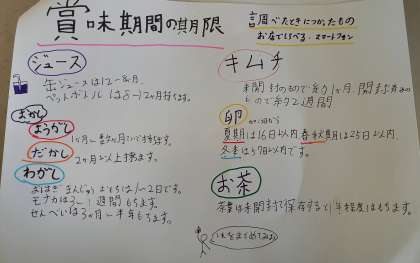 賞味期間の期限
調べたときにつかったもの
お店でしらべる・スマートフォン
ジュース
缶ジュースは12ヶ月。
ペットボトルは8〜12ヶ月持ちます。
おかし
ようがし
1ヶ月〜数ヶ月ていど持ます。
だがし
2ヶ月以上持ます。
わがし
おはぎ まんじゅう 1〜2日です。
モナカは3〜1週間もちます。
せんべいは3ヶ月〜半年もちます。
キムチ
未開封のもので約1ヶ月、開封済み
のもので約2週間
卵
夏期は16日以内 春秋期は25日以内、
冬季は57日以内です。
お茶
茶葉は未開封で保存すると1年程度はもちます。
これをまとめてみよう